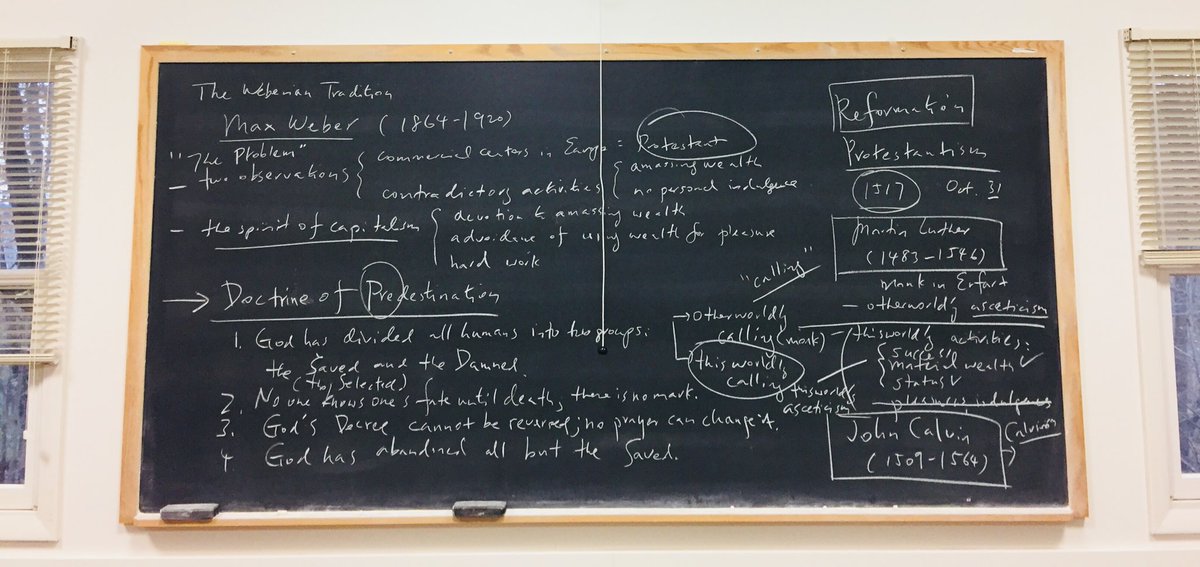 The Weberian Tradition
Max Weber (1864-1920)
"The Problem"
- two observations { commercial centers in Europe = Protestant
contradictory activities { amassing wealth
no personal indulgence
- the spirit of capitalism { devotion to amassing wealth
advoidance of using wealth for pleasure
hard work
→ Doctrine of Predestination
1. God has divided all humans into two groups:
the Saved and the Damned.
(the Selected)
2. No one knows one's fate until death, there is no mark.
3. God's Decree cannot be reversed; no prayer can change it.
4 God has abandined all but the Saved.
"calling"
→ otherworldly
calling (monk)
→ thisworldly
calling
thisworldly
asceticism
Reformation
Protestantism
1517 Oct. 31
Martin Luther
(1483-1546)
Monk in Erfurt
- otherworldly asceticism
- thisworldly activities:
{ success
material wealth ✓
status ✓
pleasures, indulgence
John Calvin
(1509-1564) → Calvinism